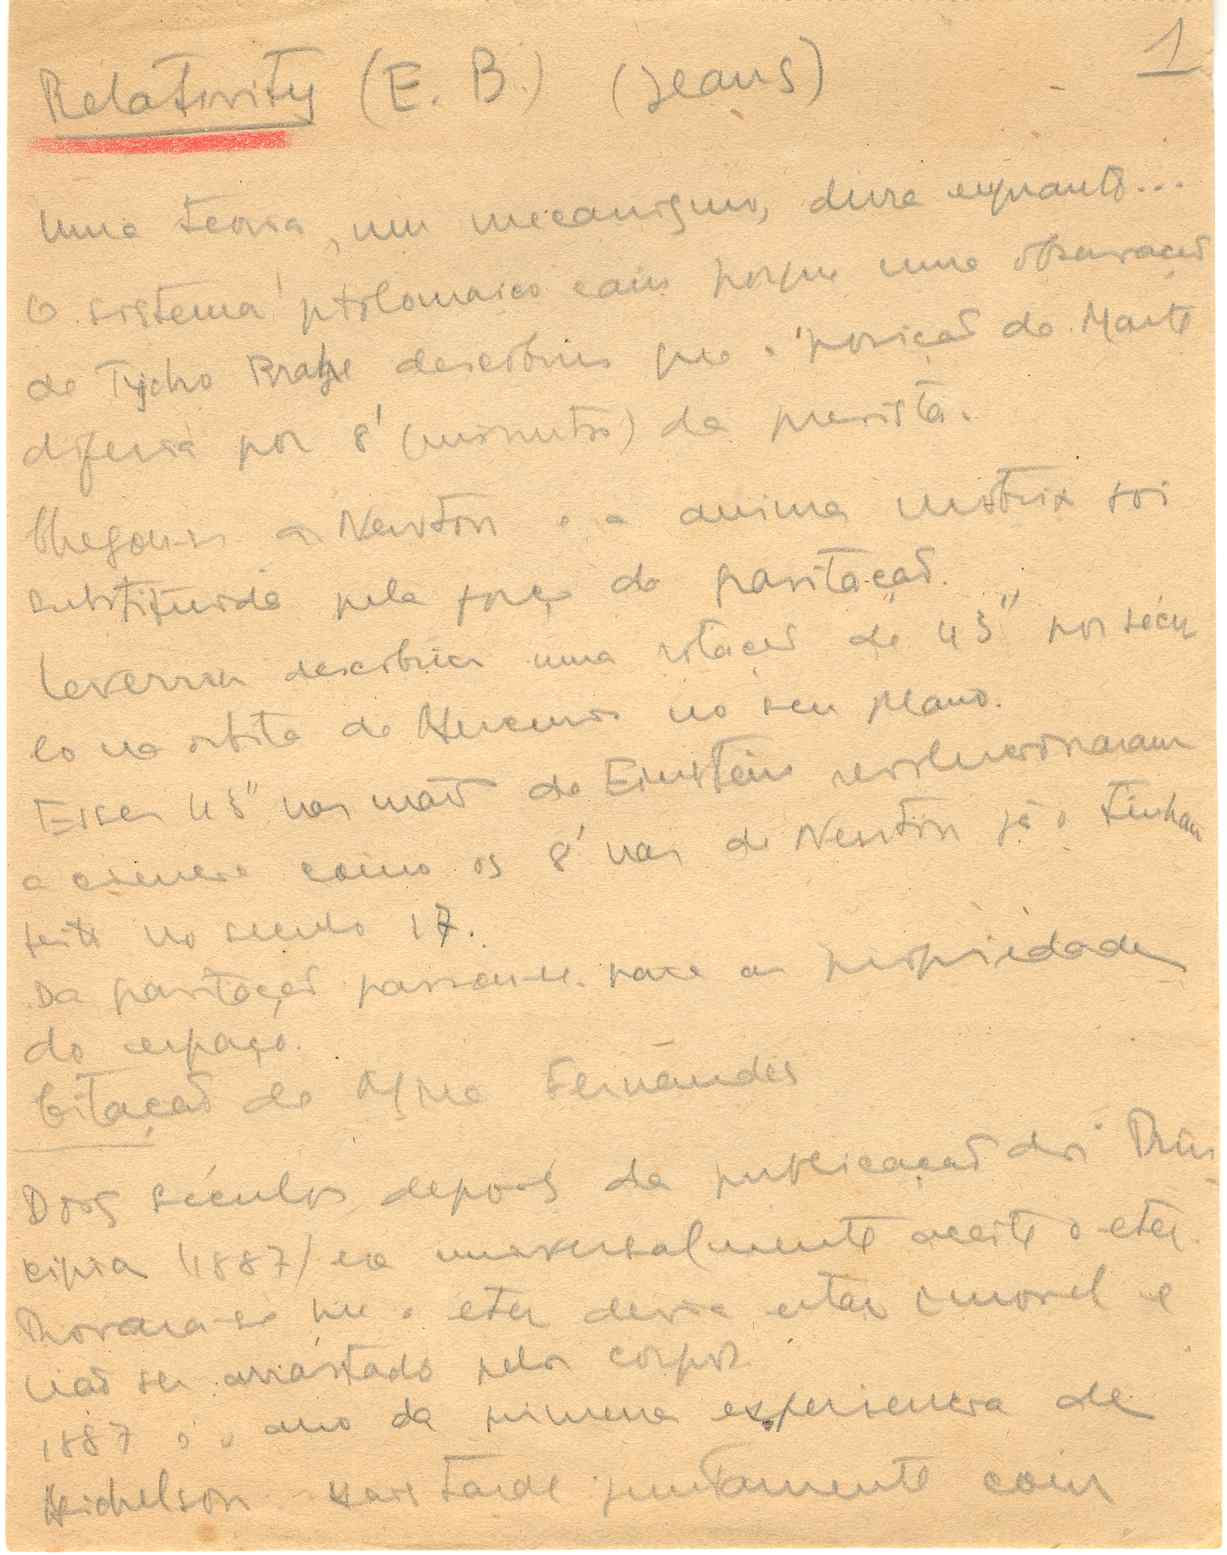 1
Relativity (E. B.) (Jeans)
Uma teoria, um mecanismo, dura enquanto...
O sistema ptolomaico caiu porque uma observação
de Tycho Brahe descobriu que a posição de Marte
diferia por 8' (minutos) da prevista.
Chegou-se a Newton e a anima motrix foi
substituida pela força da gravitação.
Leverrier descobriu uma rotação de 43" por sécu
lo na orbita de Mercurio no seu plano.
Esses 43" nas mãos de Einstein revolucionaram
a ciencia como os 8' nas de Newton já o tinham
feito no seculo 17.
Da gravitação passou-se para as propriedades
do espaço.
Citação de Fernandes
Dois séculos depois da publicação dos Prin
cipia (1887) era universalmente aceite o eter.
Provara-se que o eter devia estar imovel e
não ser arrastado pelos corpos.
1887 é o ano da primeira experiencia de
Michelson mais tarde juntamente com